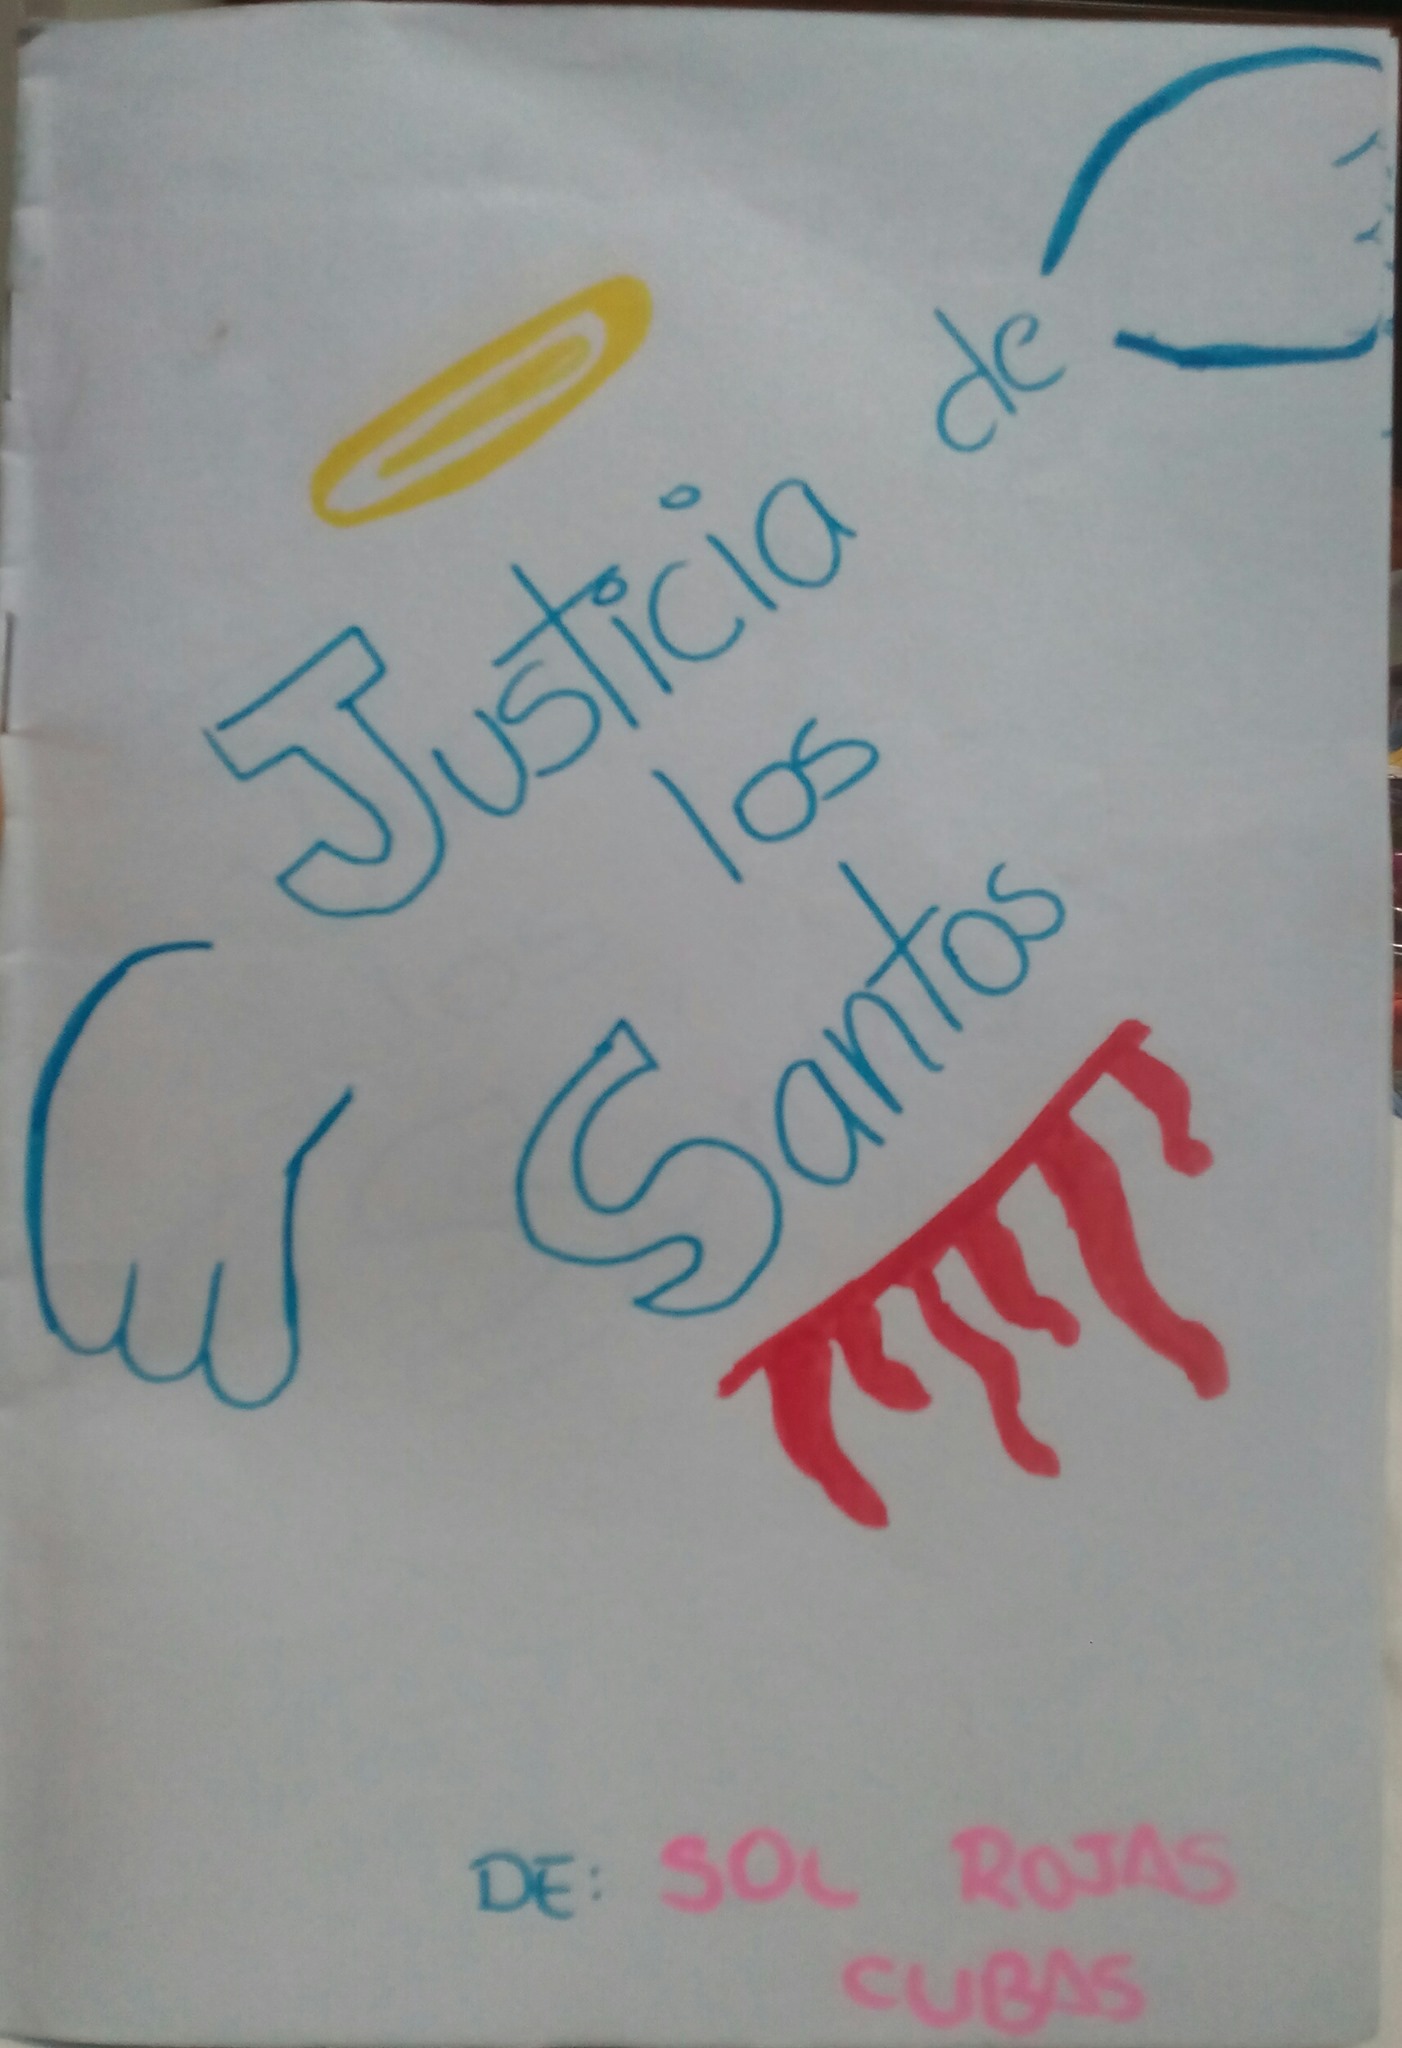 Justicia de
los
Santos
DE: SOL ROJAS
CUBAS